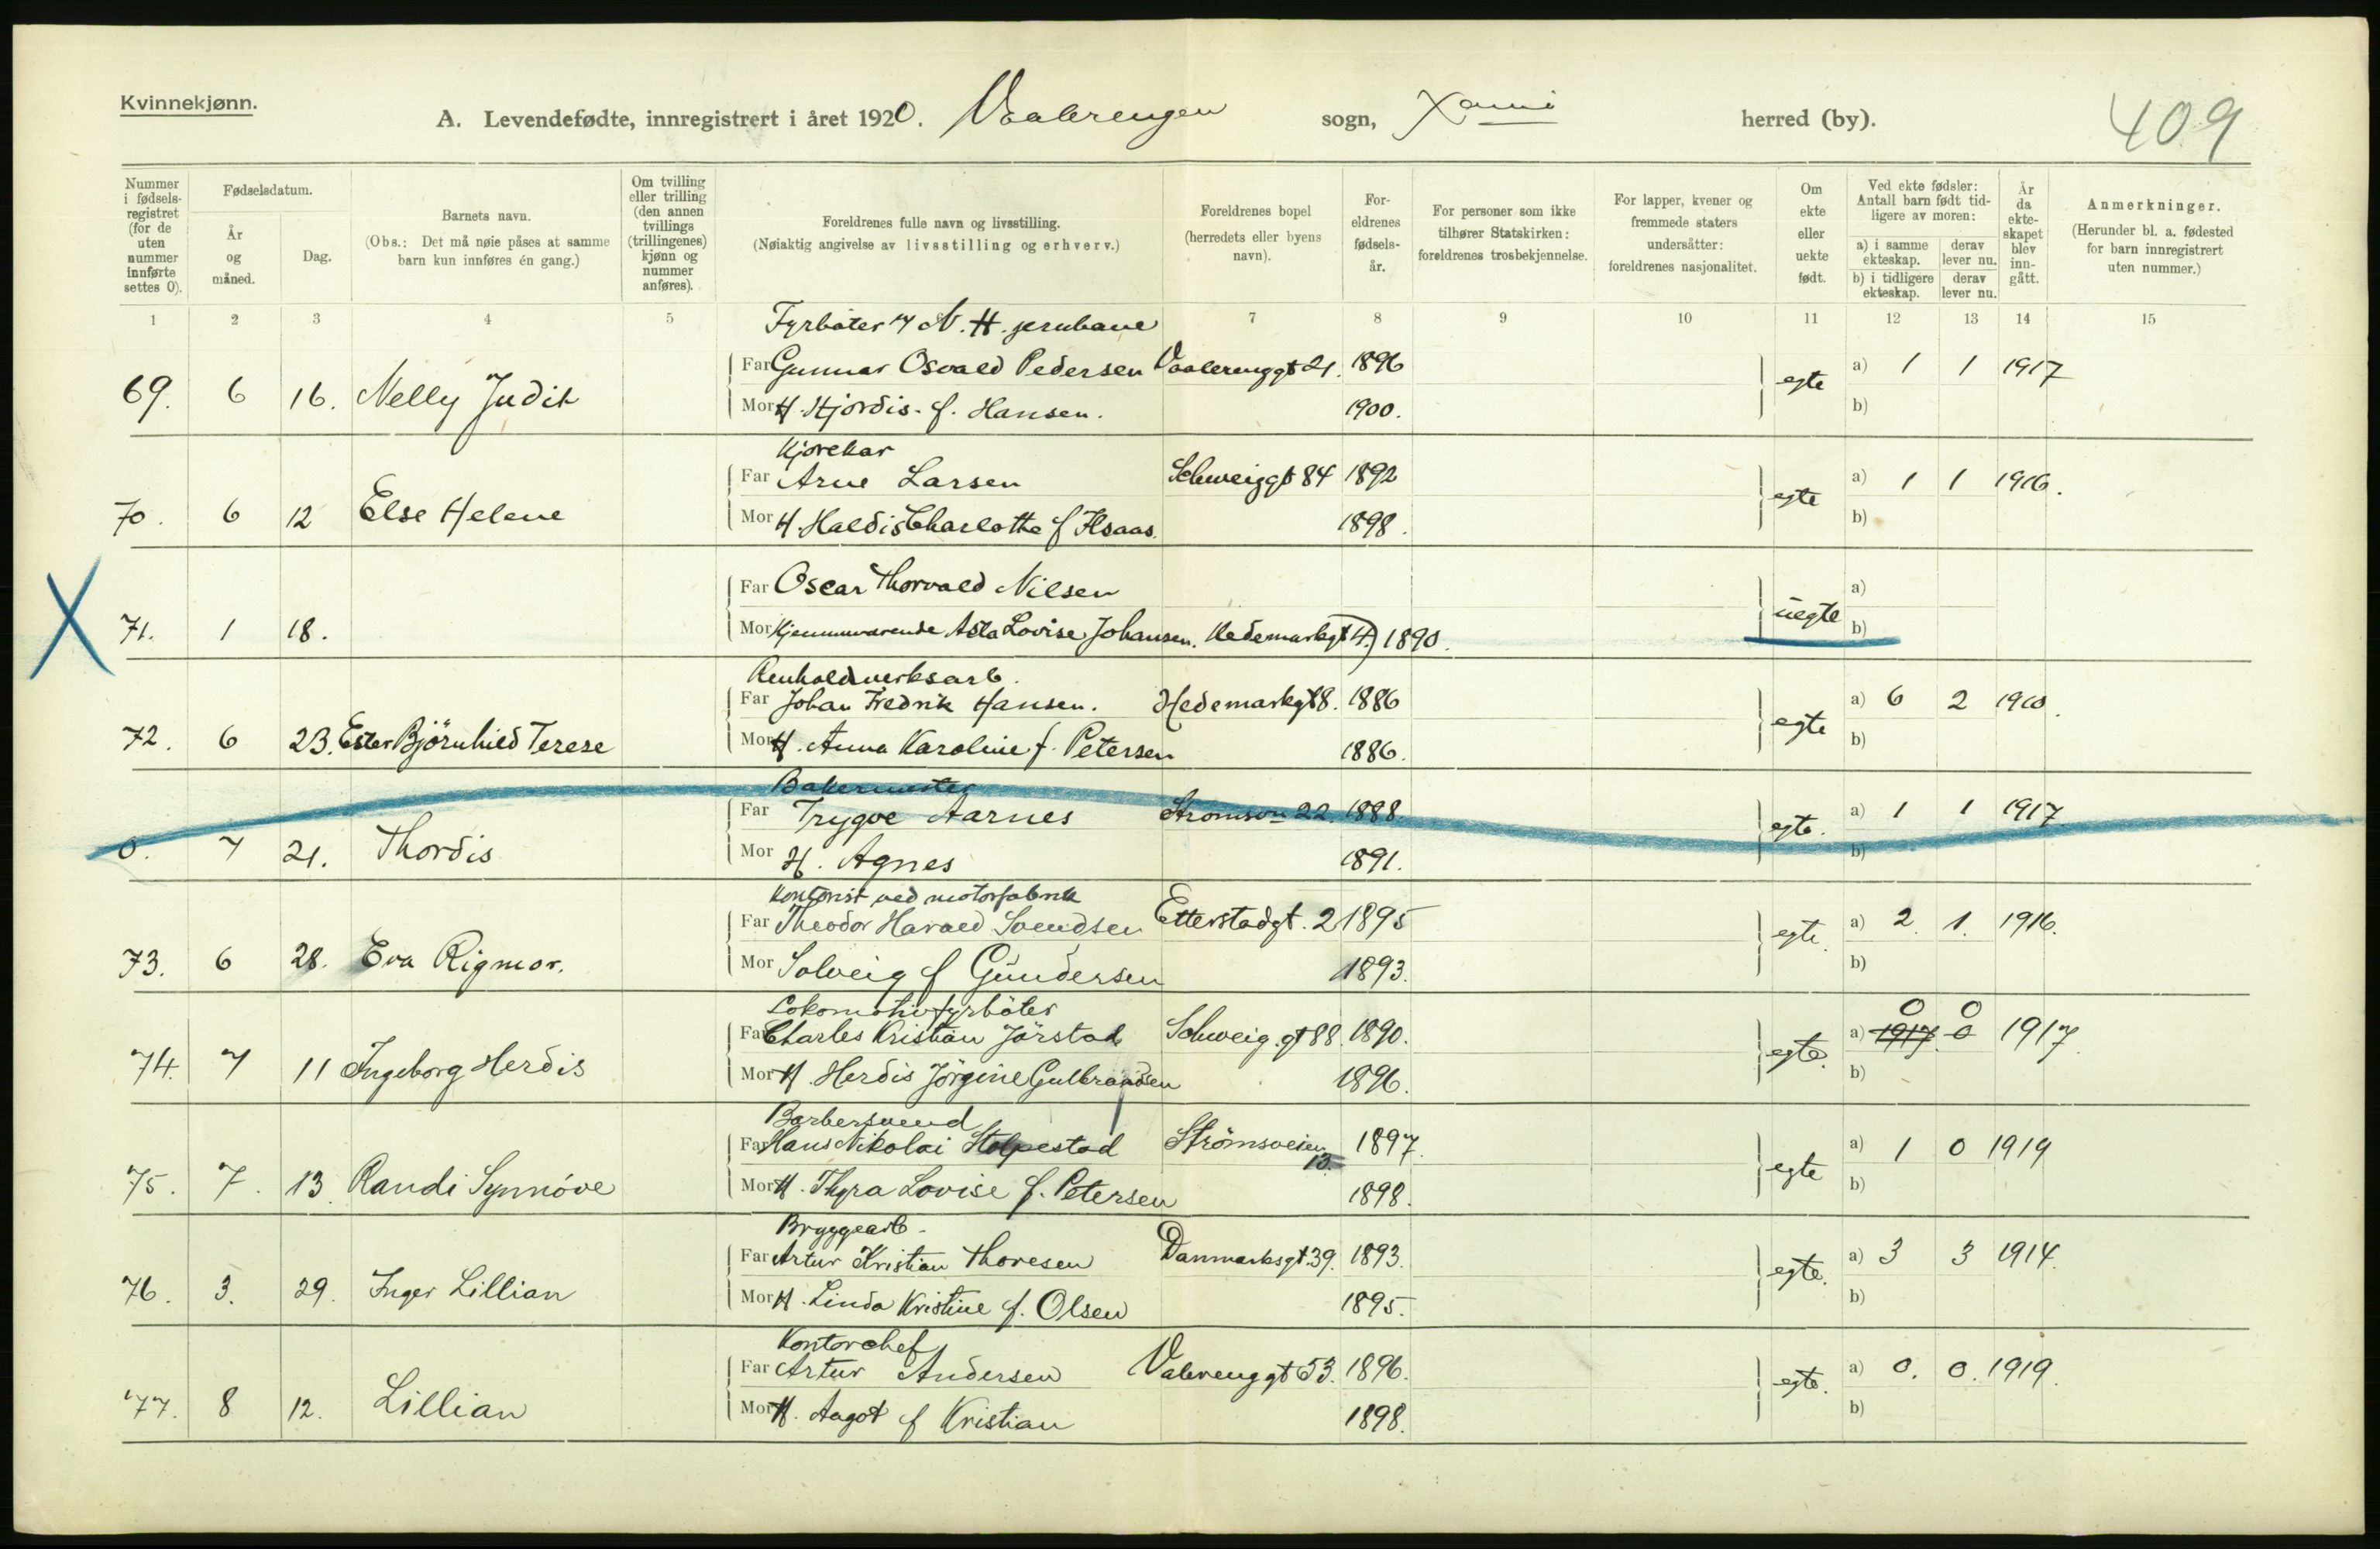 Kvinnekjønn.
A. Levendefødte, innregistrert i året 1920. Vaalerengen sogn, Xania herred (by). 409
Nummer i fødsels-registret (for de uten nummer innførte settes 0).
Fødselsdatum.
År og måned.
Dag.
Barnets navn.
(Obs.: Det må nøie påses at samme barn kun innføres én gang.)
Om tvilling eller trilling (den annen tvillings (trillingenes) kjønn og nummer anføres).
Foreldrenes fulle navn og livsstilling.
(Nøiaktig angivelse av livsstilling og erhverv.)
Foreldrenes bopel (herredets eller byens navn).
For-eldrenes fødsels-år.
For personer som ikke tilhører Statskirken: foreldrenes trosbekjennelse.
For lapper, kvener og fremmede staters undersåtter: foreldrenes nasjonalitet.
Om ekte eller uekte født.
Ved ekte fødsler: Antall barn født tid-ligere av moren:
a) i samme ekteskap. derav lever nu.
b) i tidligere ekteskap. derav lever nu.
År da ekte-skapet blev inn-gått.
Anmerkninger.
(Herunder bl. a. fødested for barn innregistrert uten nummer.)
1 2 3 4 5 7 8 9 10 11 12 13 14 15
Fyrbøter N. H. jernbane
Far Gunnar Osvald Pedersen Vaalerenggt 21. 1896 a) 1 1 1917
69. 6 16. Nelly Judit egte
Mor H. Hjørdis f. Hansen. 1900. b)
Kjørekar
Far Arne Larsen Schweiggt 84 1892 a) 1 1 1916.
70. 6 12 Else Helene egte
Mor H. Haldis Charlotte f Ilsaas. 1898. b)
Far Oscar Thorvald Nilsen a)
X 71. 1 18. uegte
Mor Hjemmeværende Asta Lovise Johansen. Hedemarkgt 4.) 1890. b)
Renholdsverksarb.
Far Johan Fredrik Hansen. Hedemarkgt 8. 1886 a) 6 2 1910.
72. 6 23. Ester Bjørnhild Terese egte
Mor H. Anna Karoline f. Petersen 1886. b)
Bakermester
Far Trygve Aarnes Strømsv 22. 1888. a) 1 1 1917
0. 7 21. Thordis egte.
Mor H. Agnes 1891. b)
Kontorist ved motorfabrik
Far Theodor Harald Svendsen Etterstadgt. 2 1895 a) 2. 1. 1916.
73. 6 28. Eva Rigmor. egte.
Mor Solveig f Gundersen 1893. b)
Lokomotivfyrbøter 0 0
Far Charles Kristian Jørstad Schweig.gt 88. 1890. a) 1917 0 1917.
74. 7 11 Ingeborg Herdis egte.
Mor H. Herdis Jørgine Gulbrandsen 1896. b)
Barbersvend
Far Hans Nikolai Stolpestad Strømsveien 13. 1897. a) 1 0 1919
75. 7. 13. Randi Synnøve egte
Mor H. Thyra Lovise f. Petersen 1898. b)
Bryggearb.
Far Artur Kristian Thoresen Danmarksgt. 39. 1893. a) 3 3 1914.
76. 3. 29. Inger Lillian egte.
Mor H. Linda Kristine f. Olsen 1895. b)
Kontorchef
Far Artur Andersen Valerenggt 53. 1896. a) 0. 0. 1919.
77. 8 12. Lillian egte.
Mor H. Aagot f Kristian 1898. b)